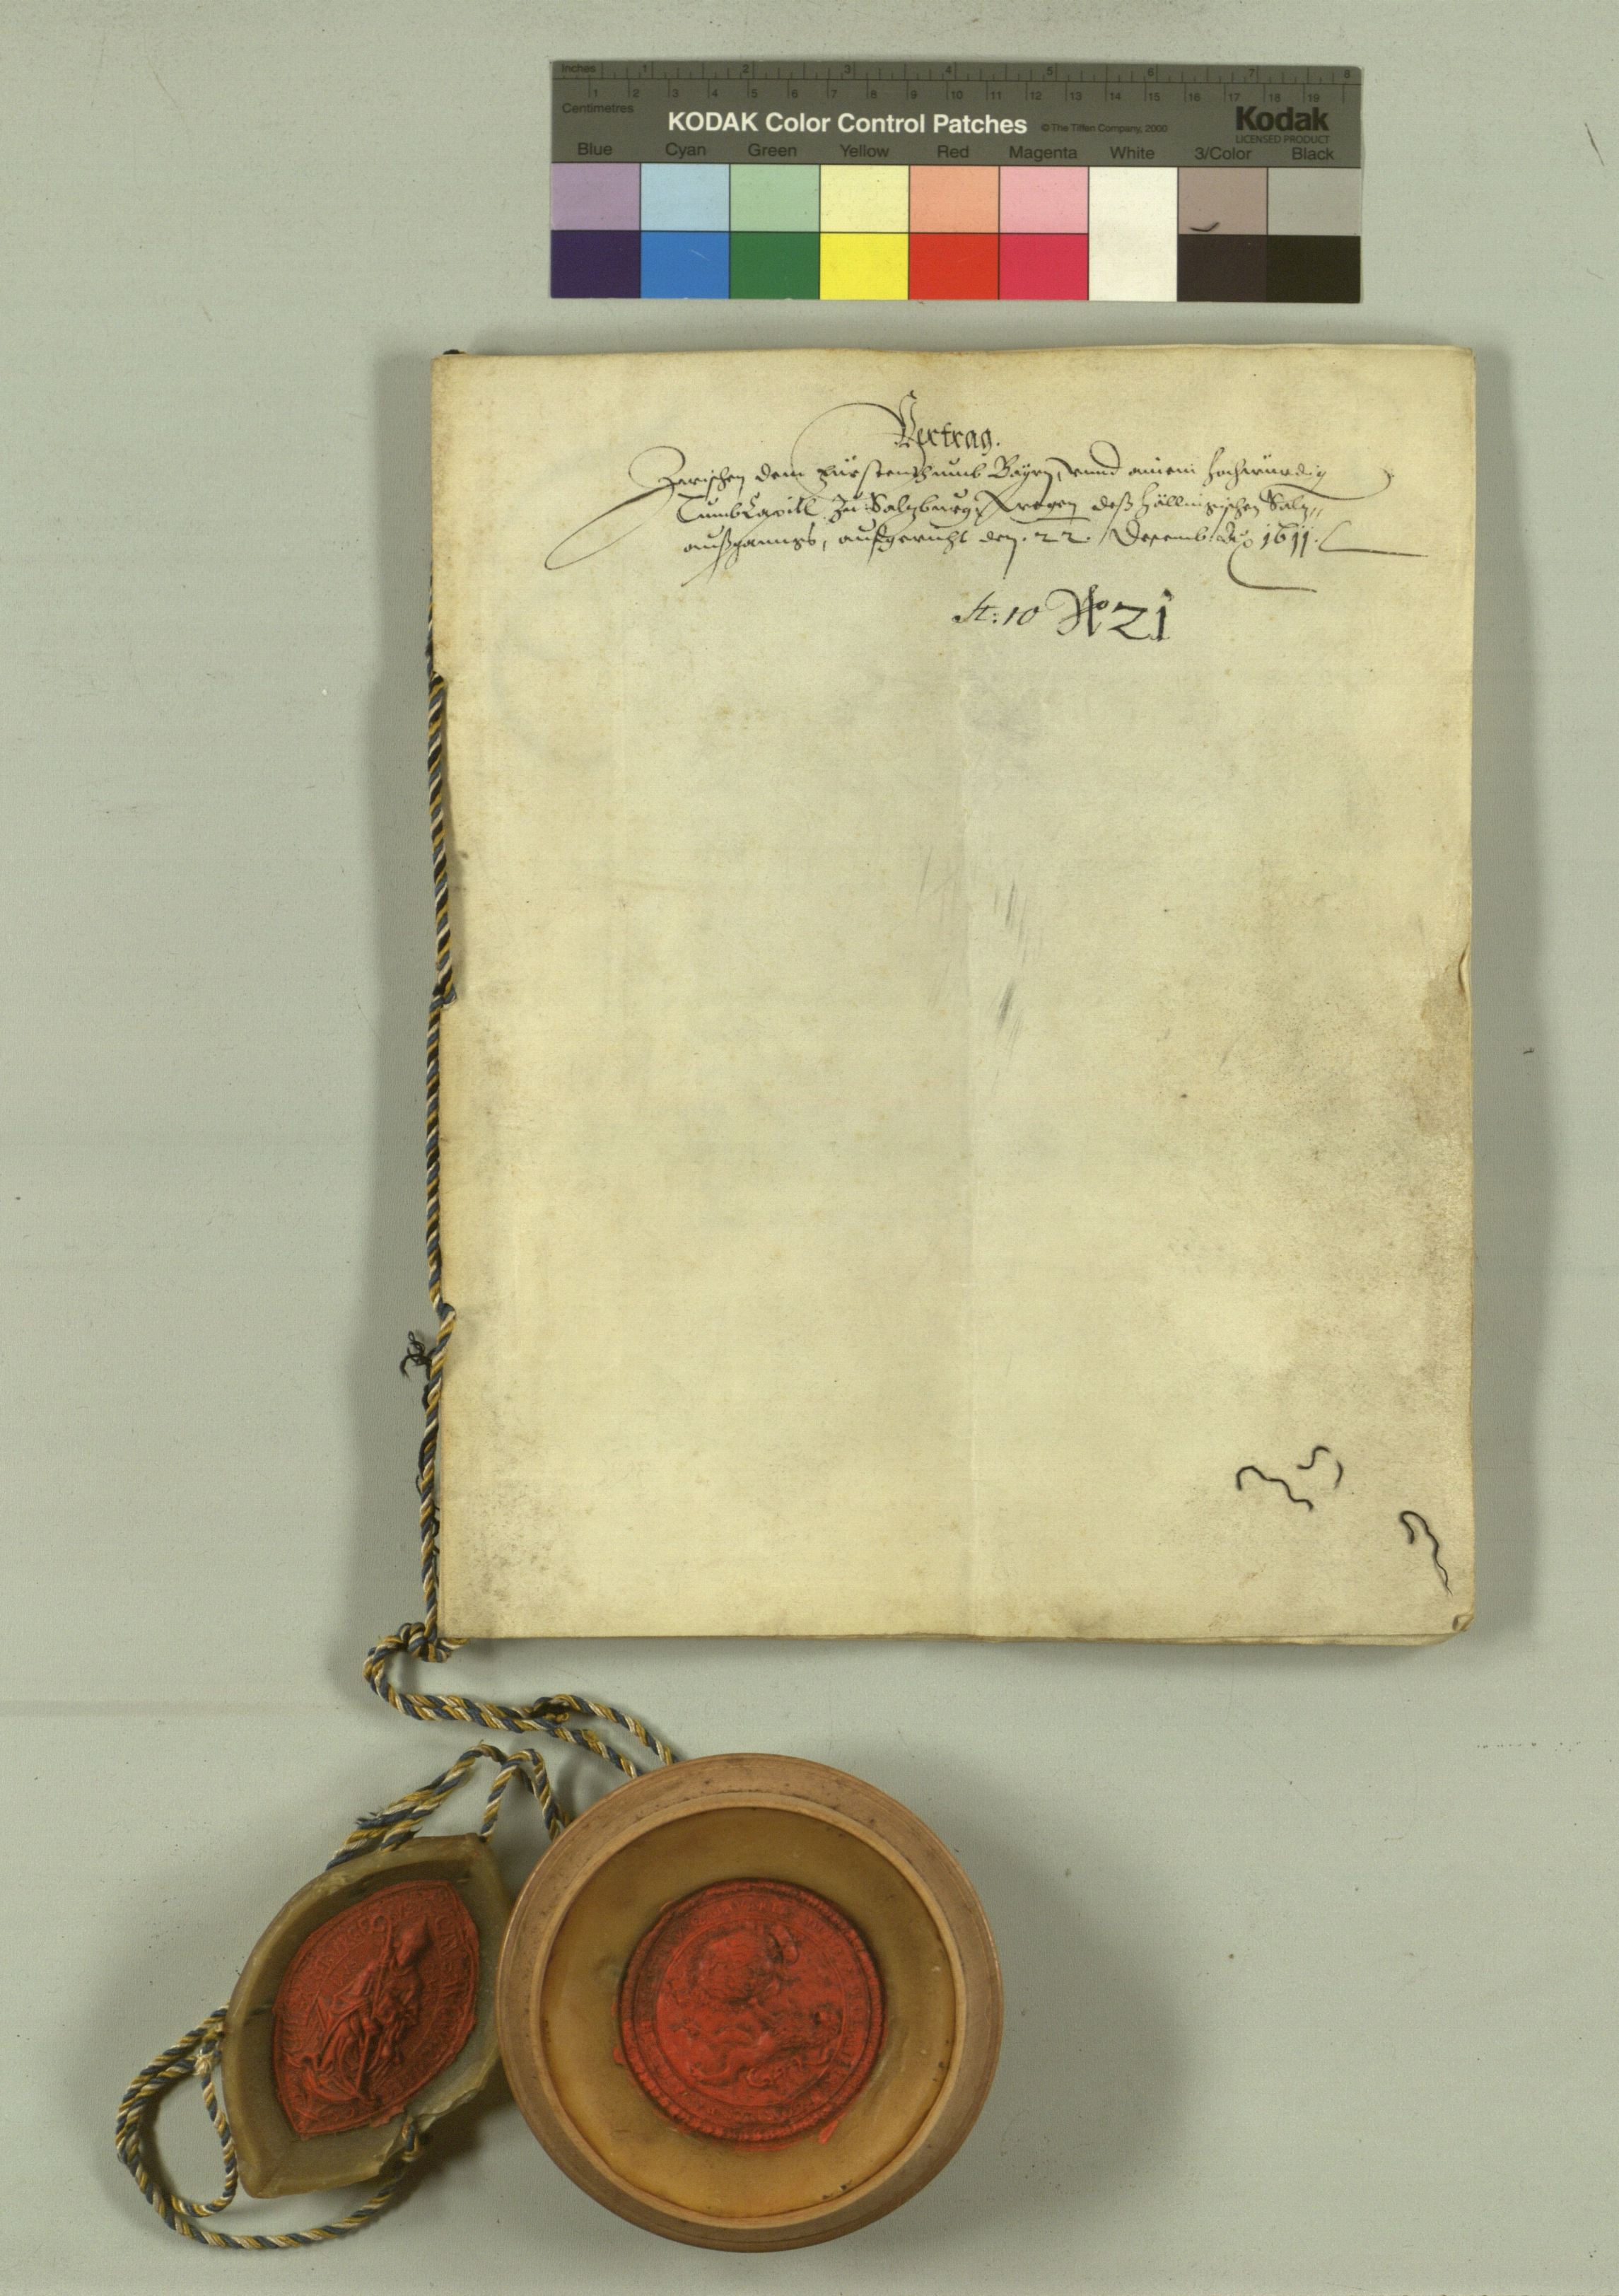 Inches 1 2 3 4 5 6 7 8
1 2 3 4 5 6 7 8 9 10 11 12 13 14 15 16 17 18 19
Centimetres
KODAK Color Control Patches ©The Tiffen Company, 2000 Kodak
LICENSED PRODUCT
Blue Cyan Green Yellow Red Magenta White 3/Color Black
Vertrag.
Zwischen dem Fürstenthumb Bayrn, vnnd ainem Hochwürdig
TumbCapitl Zu Salzburg, wegen deß Hällingischen Salz„
außganngs, aufgericht den. 22. Decemb: Aõ 1611.
St: 10 No 21